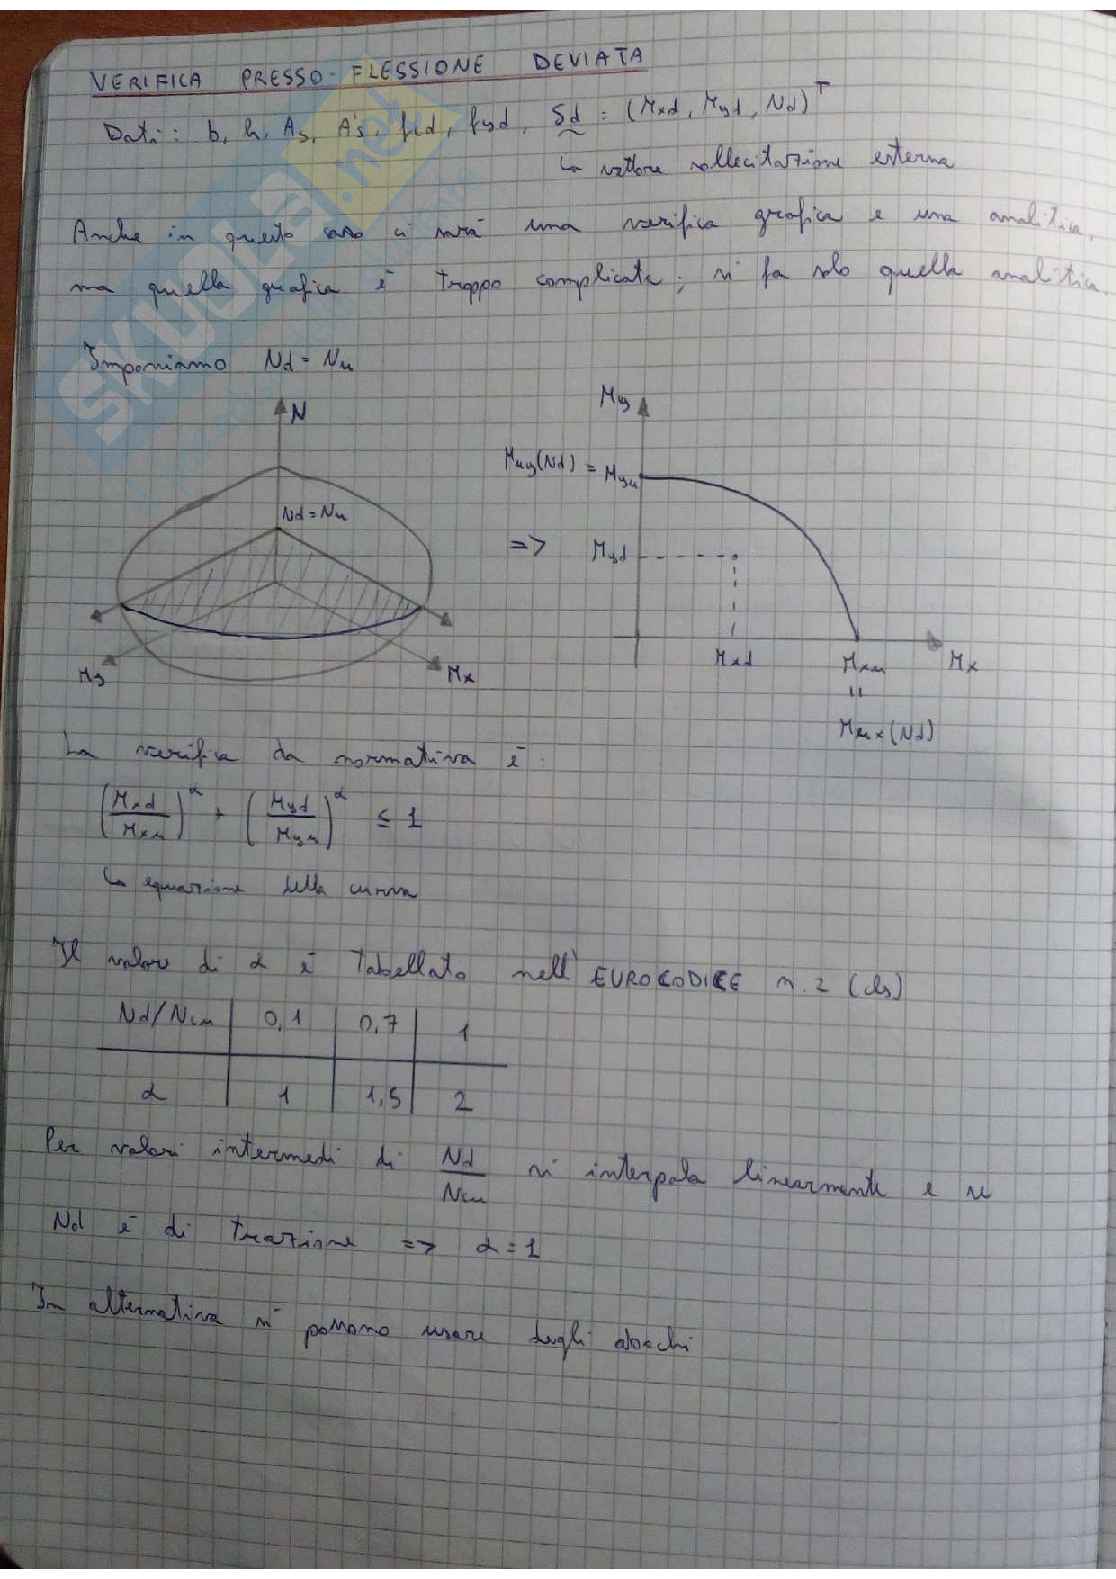 VERIFICA PRESSO-FLESSIONE DEVIATA
Dati: b, h, As, A's, fcd, fyd, Sd = (Mxd, Myd, Nd)^T
↳ vettore sollecitazione esterna
Anche in questo caso ci sarà una verifica grafica e una analitica,
ma quella grafica è troppo complicata; si fa solo quella analitica.
Imponiamo Nd = Nu
N
Nd = Nu
My
Mx
=>
My
Muy(Nd) = Myu
Myd
Mxd
Mxu
Mx
=
Mux(Nd)
La verifica da normativa è:
(Mxd/Mxu)^α + (Myd/Myu)^α ≤ 1
↳ equazione della curva
Il valore di α è tabellato nell'EUROCODICE n.2 (cls)
Nd/Ncu | 0,1 | 0,7 | 1
α | 1 | 1,5 | 2
Per valori intermedi di Nd/Ncu si interpola linearmente e se
Nd è di trazione => α = 1
In alternativa si possono usare degli abachi
SKUOLA.net